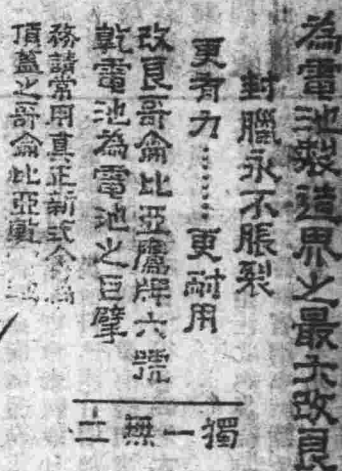 為電池製造界之最大改良
封臘永不脹裂
更有力………更耐用
改良哥侖比亞鷹牌六號
乾電池為電池之巨擘
務請常用真正新式
頂蓋之哥侖比亞
獨一無二